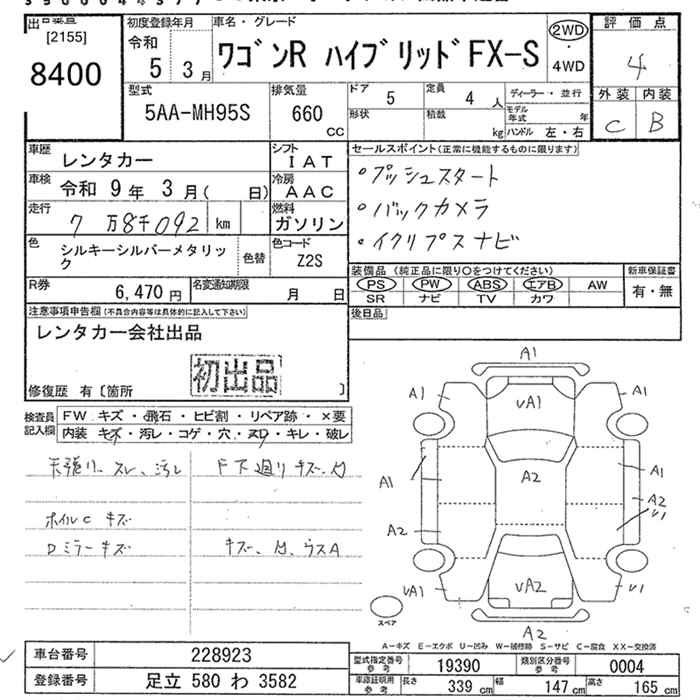 出品番号
[2155]
8400
初度登録年月
令和
5 3 月
車名・グレード
ワゴンR ハイブリッドFX-S
2WD
・
4WD
評価点
4
外装 内装
C B
型式
5AA-MH95S
排気量
660
CC
ドア
5
定員
4 人
形状
積載
kg
ディーラー・並行
モデル年式 年
ハンドル 左・右
車歴
レンタカー
シフト
IAT
車検
令和 9年 3月( 日)
冷房
AAC
走行
7万8千092 km
燃料
ガソリン
色
シルキーシルバーメタリック
色替
色コード
Z2S
R券
6,470 円
名変通知期限
月 日
セールスポイント(正常に機能するものに限ります)
・プッシュスタート
・バックカメラ
・イクリプスナビ
装備品 (純正品に限り○をつけてください)
PS PW ABS エアB AW
SR ナビ TV カワ
新車保証書
有・無
後日品
注意事項申告欄(不具合内容等は具体的に記入して下さい)
レンタカー会社出品
初出品
修復歴 有〔箇所 〕
検査員記入欄
FW キズ・飛石・ヒビ割・リペア跡・×要
内装 キズ・汚レ・コゲ・穴・スレ・キレ・破レ
天張リ スレ、汚レ
F下廻リ キズ、凹
ホイルC キズ
Dミラーキズ
キズ、凹、ウスA
A1
A1
A1
vA1
A1
A1
A2
A2
v1
A2
vA1
vA2
v1
A2
スペア
A-キズ E-エクボ U-凹み W-補修跡 S-サビ C-腐食 XX-交換済
車台番号
228923
登録番号
足立 580 わ 3582
型式指定番号
参考
19390
類別区分番号
参考
0004
車庫証明用
参考
長さ 339 cm 幅 147 cm 高さ 165 cm